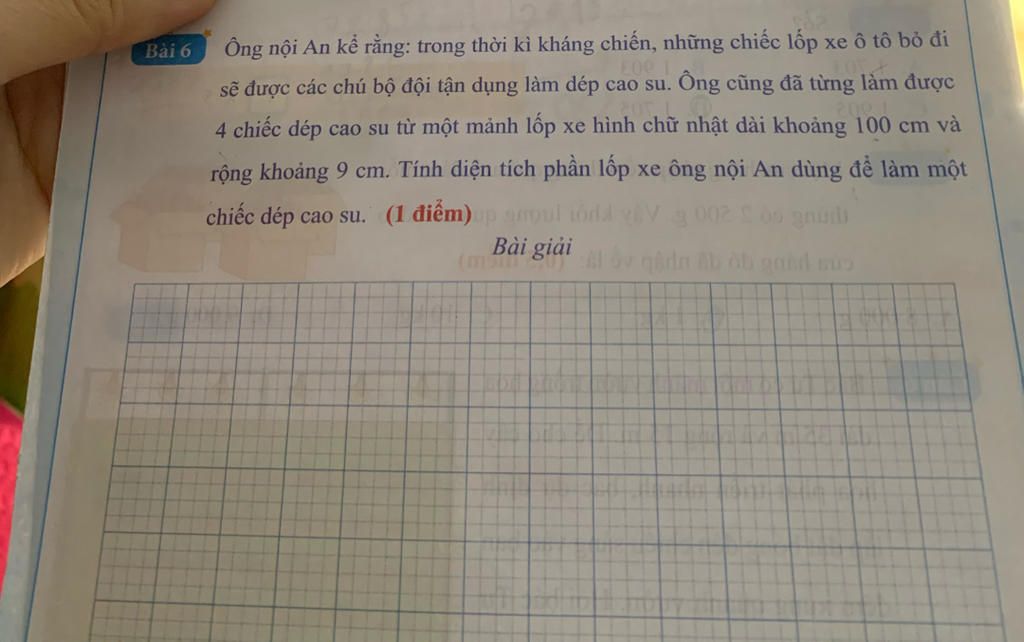 Bài 6 Ông nội An kể rằng: trong thời kì kháng chiến, những chiếc lốp xe ô tô bỏ đi
sẽ được các chú bộ đội tận dụng làm dép cao su. Ông cũng đã từng làm được
4 chiếc dép cao su từ một mảnh lốp xe hình chữ nhật dài khoảng 100 cm và
rộng khoảng 9 cm. Tính diện tích phần lốp xe ông nội An dùng để làm một
chiếc dép cao su. (1 điểm)
Bài giải